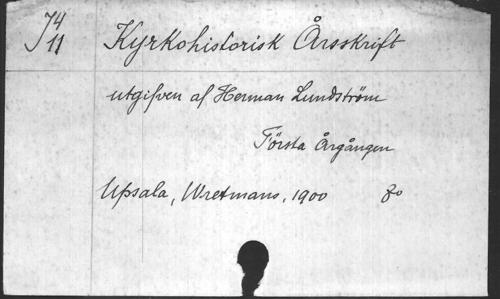 J4
11
Kyrkohistorisk Årsskrift
utgifven af Herman Lundström
Första Årgången
Upsala, Wretmans, 1900 8o